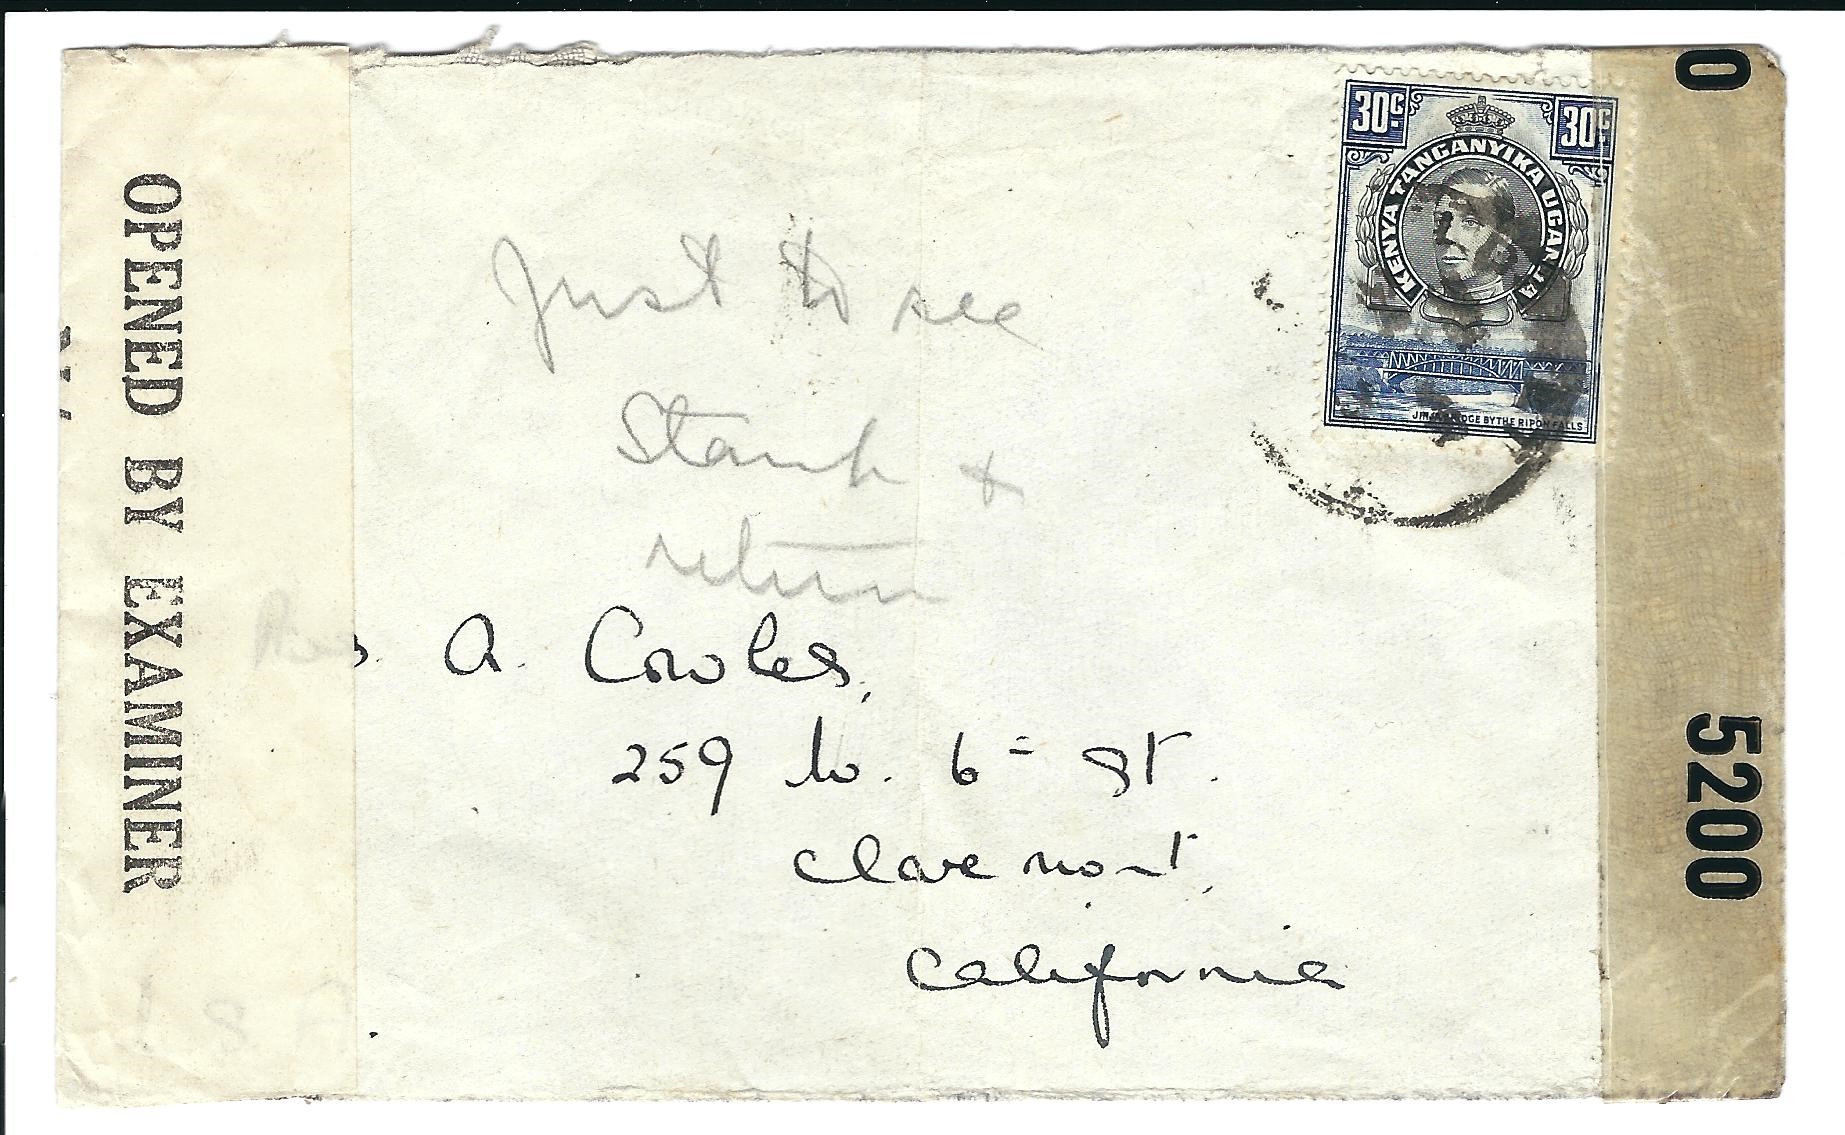 OPENED BY EXAMINER
Just to see
Stamp &
return
A. Cowles,
259 W. 6= St.
Claremont,
California
30C.
30C.
KENYA TANGANYIKA UGANDA
JINJA BRIDGE BY THE RIPON FALLS
0
5200
U S A